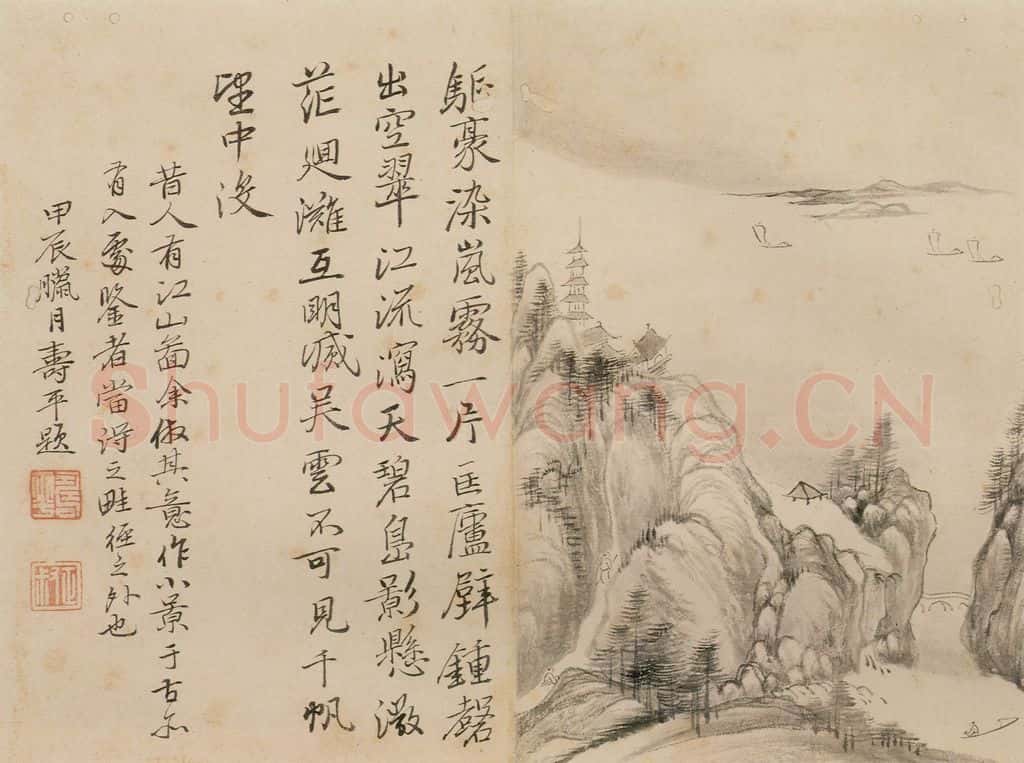 驅豪染嵐霧一片匡廬壁鍾磬
出空翠江流瀉天碧島影懸微
茫廻灘互明滅吳雲不可見千帆
望中沒
昔人有江山啚余倣其意作小景于古亦
有入處鑒者當得之畦徑之外也
甲辰臘月壽平題
Shufawang.CN